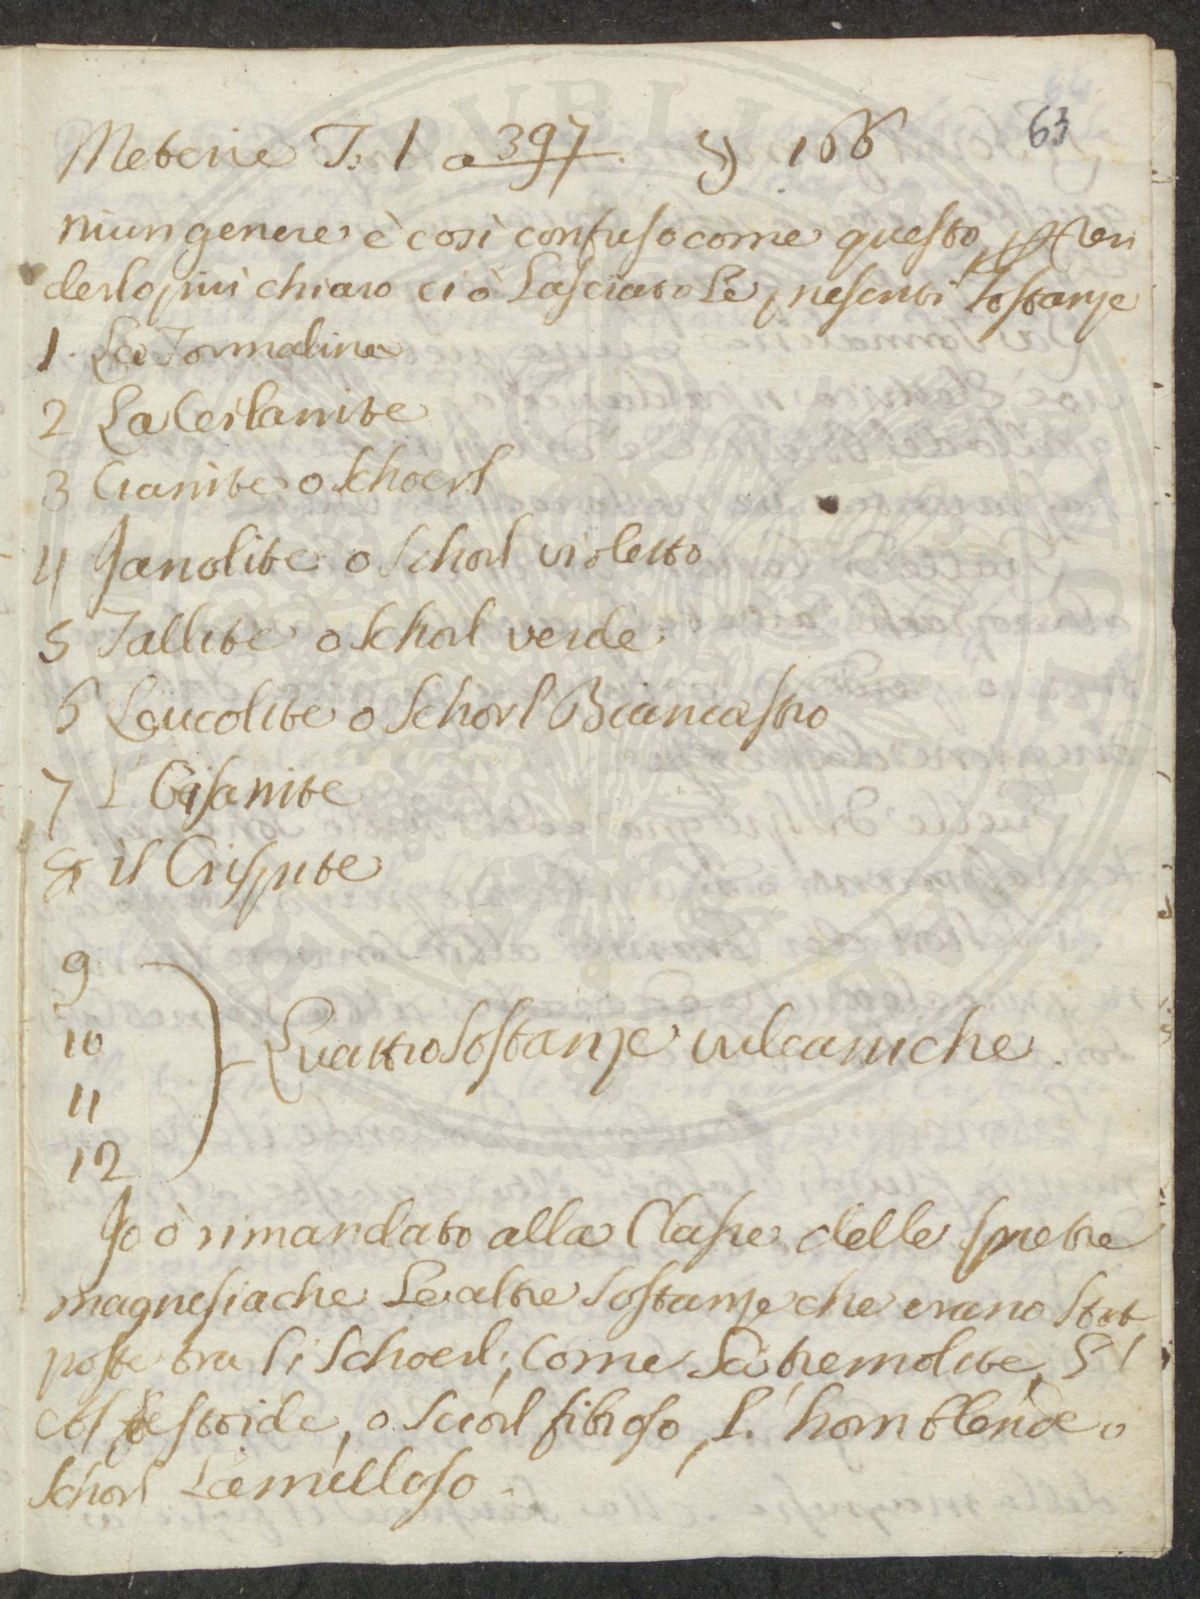 Meterie T. 1 a 397. 5) 166 63
niun genere è così confuso come questo, p ren
derlo piu chiaro ci ò Lasciato Le presenti Sostanze
1. La Tormalina
2 La Ceilanite
3 Cianite o Schoerl
4 Janolite o Schorl violetto
5 Tallite o Schorl verde
6 Leucolite o Schorl Biancastro
7 L' Oisanite
8 il Crispite
9
10
11
12
Quattro Sostanze vulcaniche.
Jo ò rimandato alla Classe delle pietre
magnesiache Le altre Sostanze che erano State
poste tra li Schoerl, Come La tremolite, L'
Asbestoide, o Sciorl fibroso, L' hornblende o
Schorl Lamelloso.